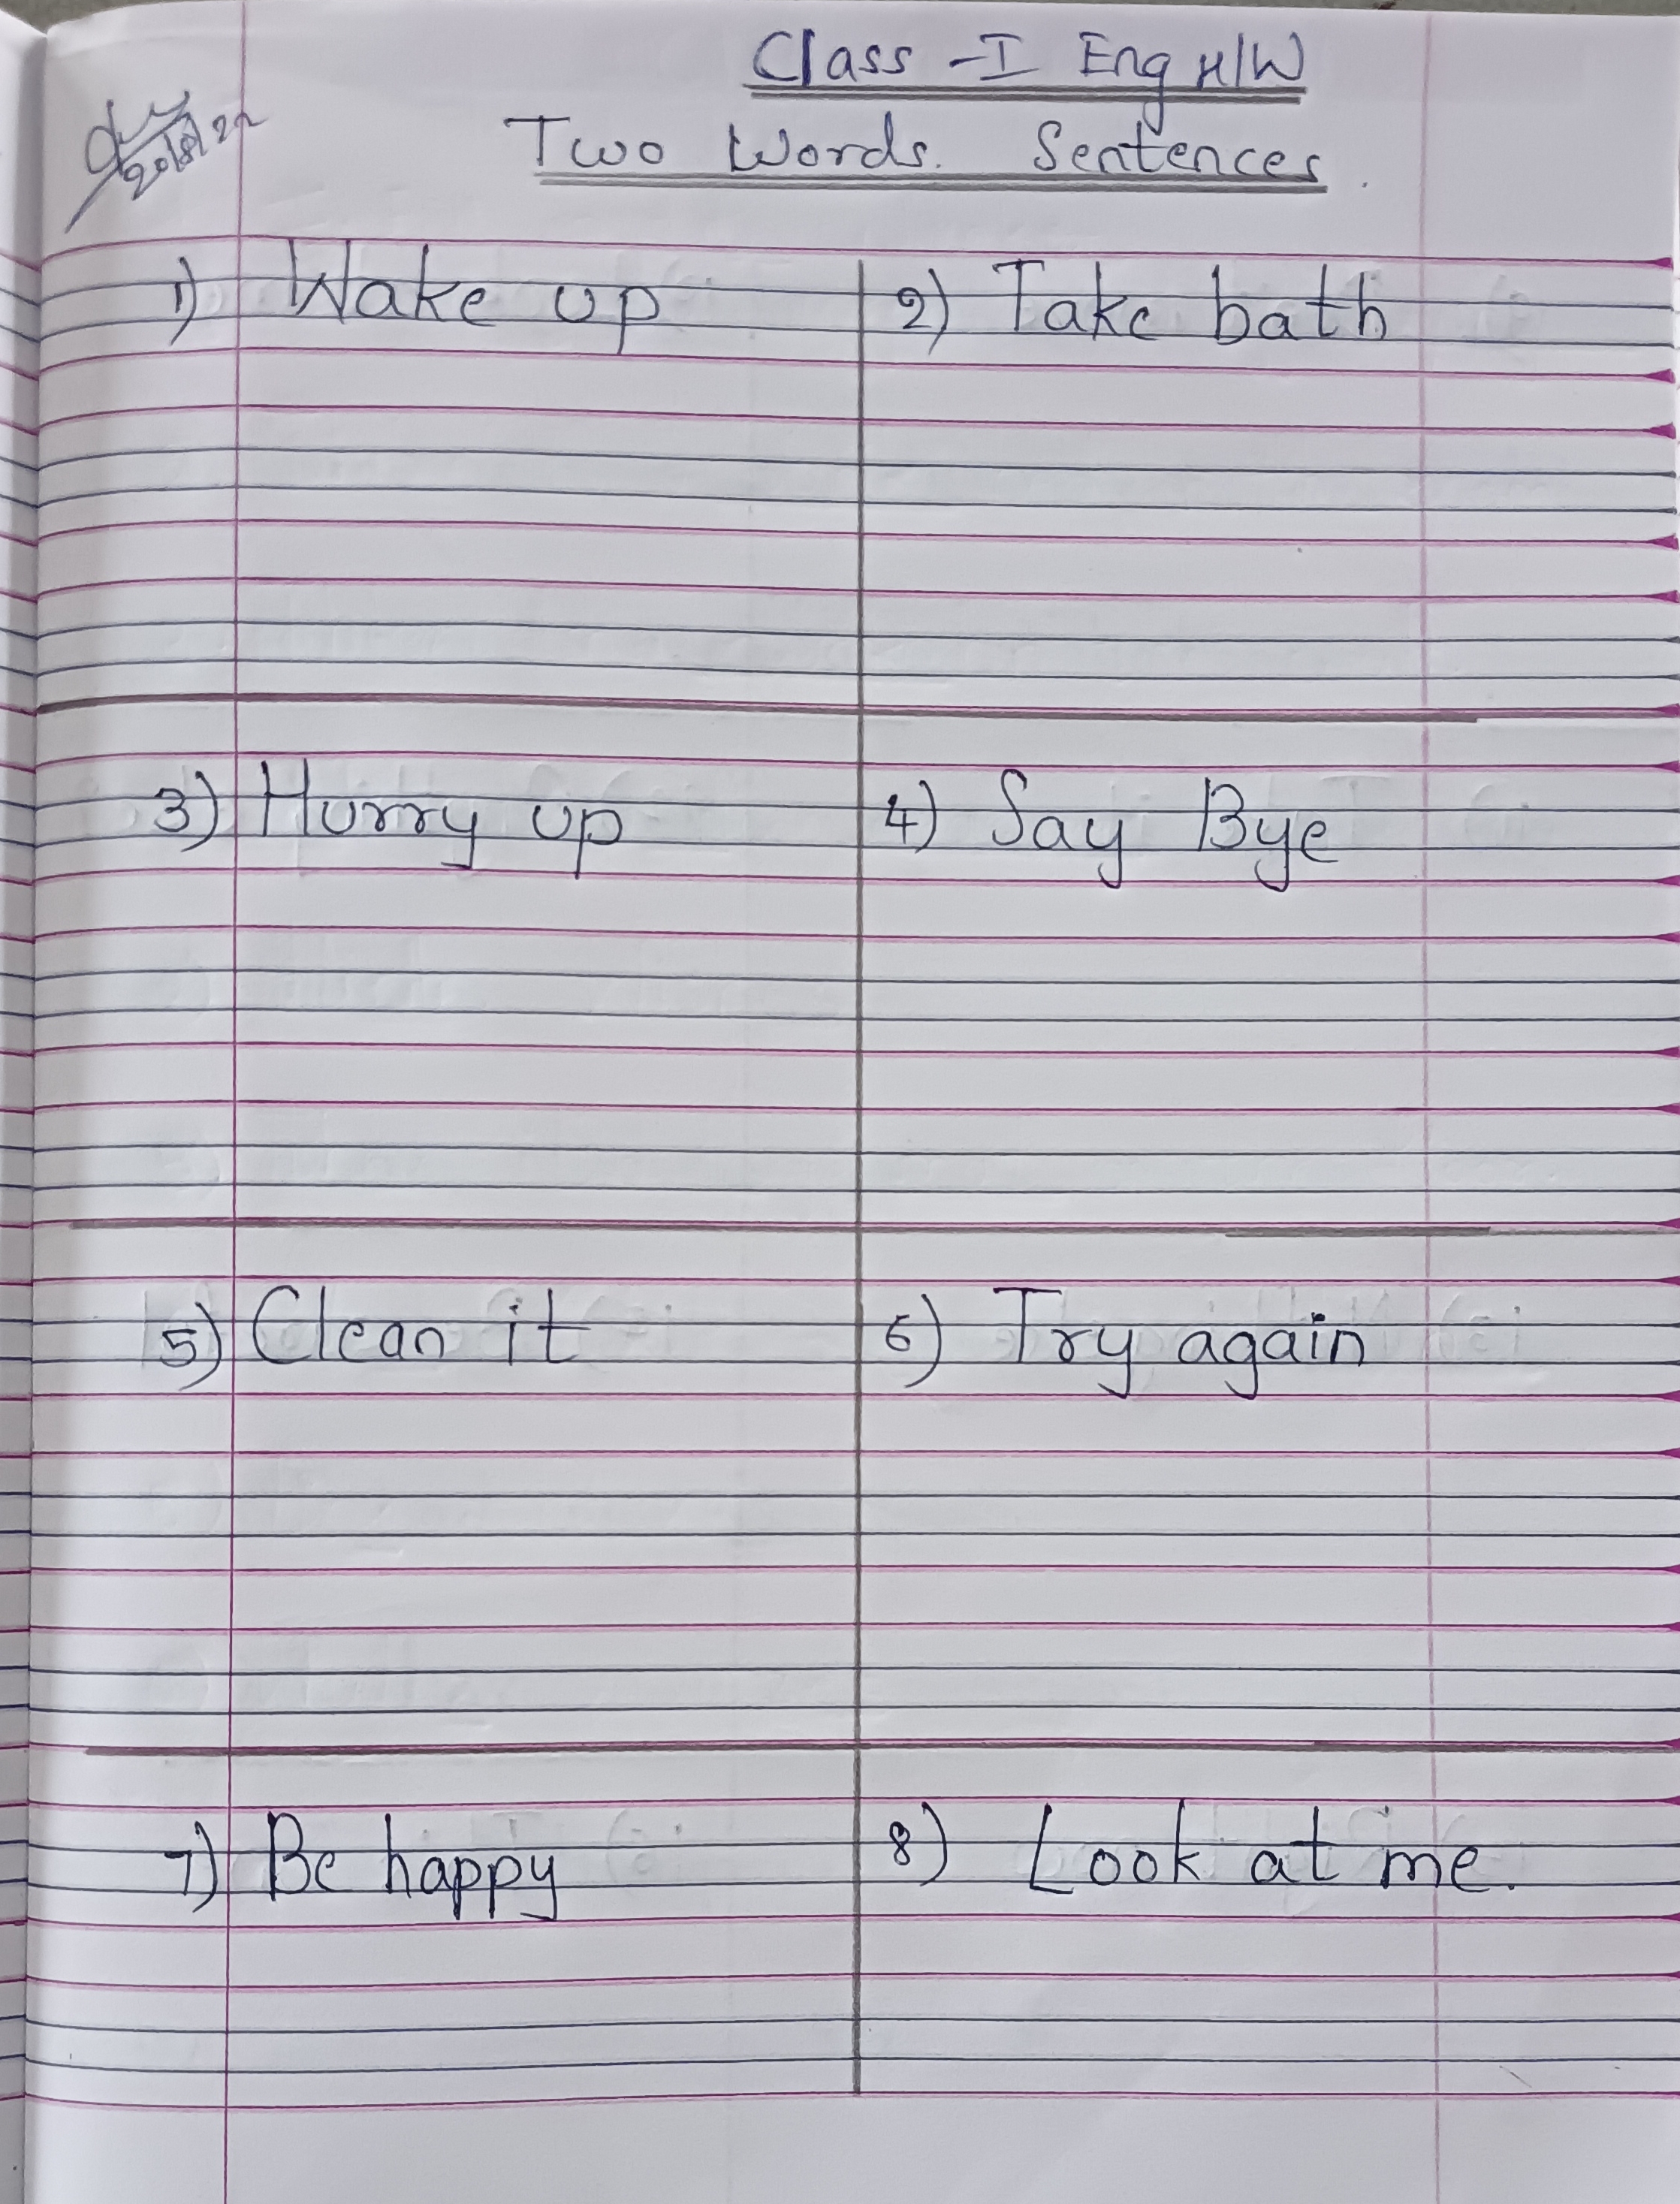 Class - I Eng H/W
20/8/22
Two Words. Sentences.
1) Wake up
2) Take bath
3) Hurry up
4) Say Bye
5) Clean it
6) Try again
7) Be happy
8) Look at me.